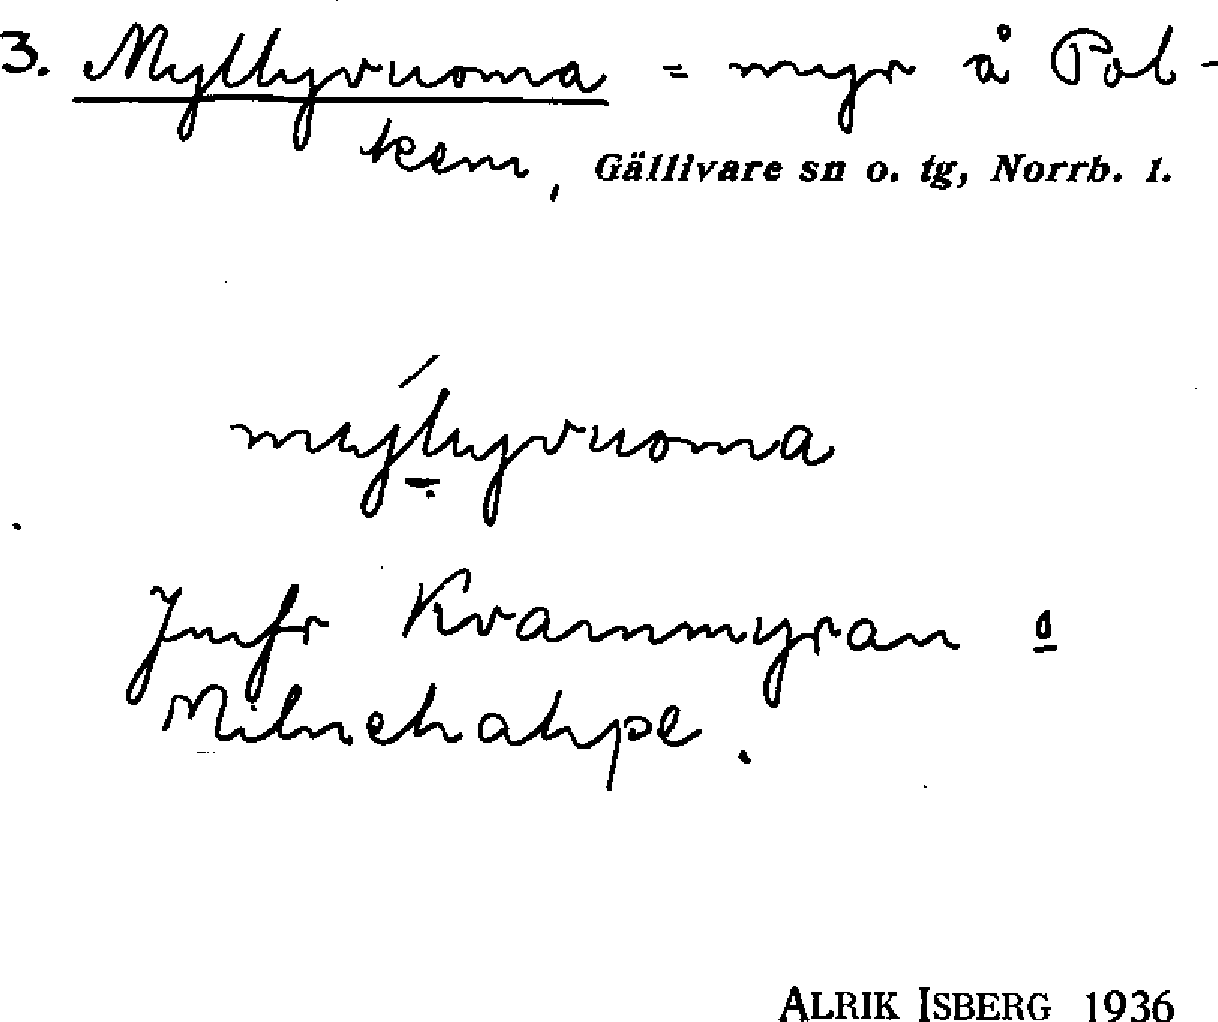 3. Myllyvuoma = myr å Pol-
kem, Gällivare sn o. tg, Norrb. l.
mylyvuoma
Jmfr Kvarnmyran o
Milnehahpe.
ALRIK ISBERG 1936